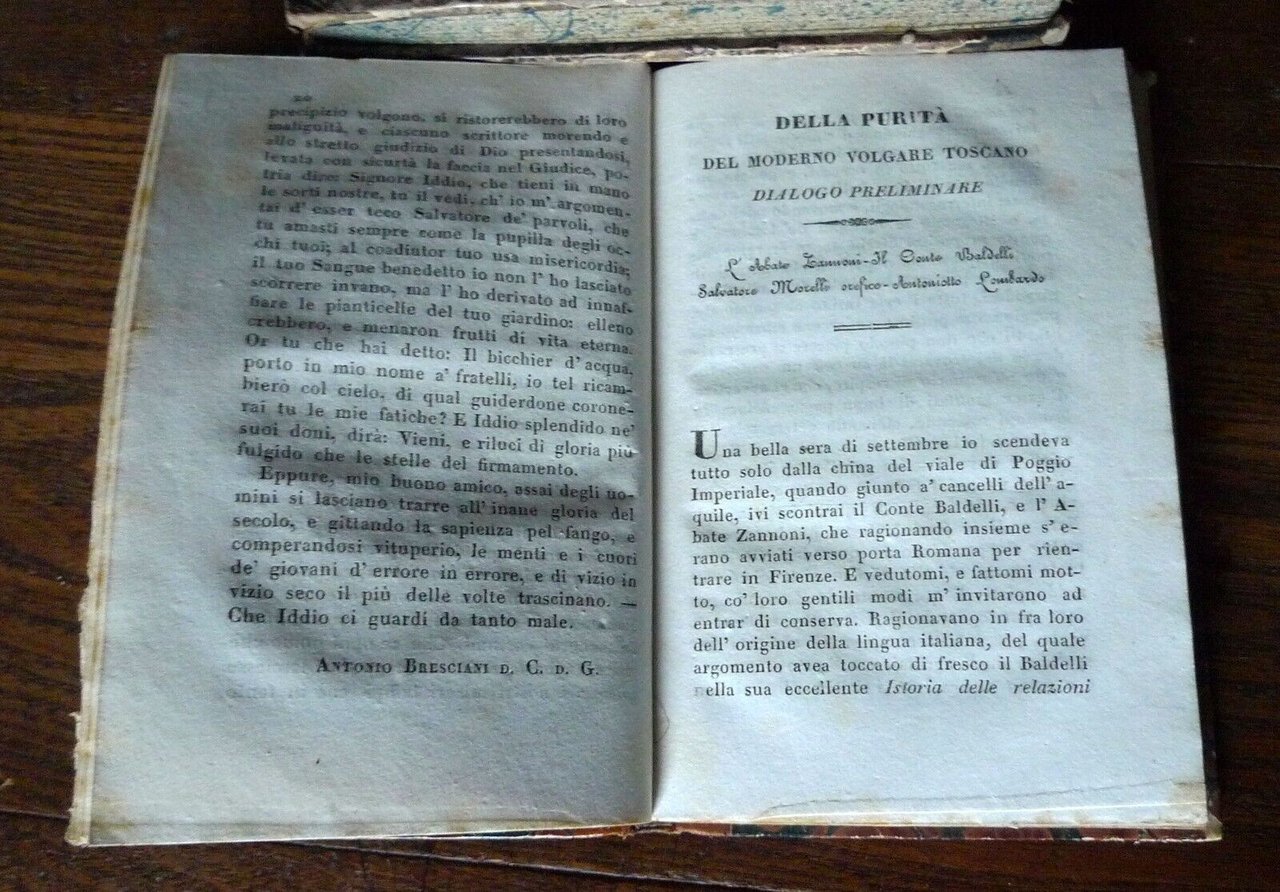 20
precipizio volgono, si ristorerebbero di loro
malignità, e ciascuno scrittore morendo e
allo stretto giudizio di Dio presentandosi,
levata con sicurtà la faccia nel Giudice, po-
tria dire: Signore Iddio, che tieni in mano
le sorti nostre, tu il vedi, ch' io m' argomen-
tai d' esser teco Salvatore de' parvoli, che
tu amasti sempre come la pupilla degli oc-
chi tuoi; al coadiutor tuo usa misericordia;
il tuo Sangue benedetto io non l' ho lasciato
scorrere invano, ma l' ho derivato ad innaf-
fiare le pianticelle del tuo giardino: elleno
crebbero, e menaron frutti di vita eterna.
Or tu che hai detto: Il bicchier d' acqua,
porto in mio nome a' fratelli, io tel ricam-
bierò col cielo, di qual guiderdone corone-
rai tu le mie fatiche? E Iddio splendido ne'
suoi doni, dirà: Vieni, e riluci di gloria più
fulgido che le stelle del firmamento.
Eppure, mio buono amico, assai degli uo-
mini si lasciano trarre all' inane gloria del
secolo, e gittando la sapienza pel fango, e
comperandosi vituperio, le menti e i cuori
de' giovani d' errore in errore, e di vizio in
vizio seco il più delle volte trascinano. —
Che Iddio ci guardi da tanto male.
ANTONIO BRESCIANI D. C. D. G.
DELLA PURITÀ
DEL MODERNO VOLGARE TOSCANO
DIALOGO PRELIMINARE
L' Abate Zannoni - Il Conte Baldelli
Salvatore Morelli orefico - Antoniotto Lombardo
Una bella sera di settembre io scendeva
tutto solo dalla china del viale di Poggio
Imperiale, quando giunto a' cancelli dell' a-
quile, ivi scontrai il Conte Baldelli, e l' A-
bate Zannoni, che ragionando insieme s' e-
rano avviati verso porta Romana per rien-
trare in Firenze. E vedutomi, e fattomi mot-
to, co' loro gentili modi m' invitarono ad
entrar di conserva. Ragionavano in fra loro
dell' origine della lingua italiana, del quale
argomento avea toccato di fresco il Baldelli
nella sua eccellente Istoria delle relazioni